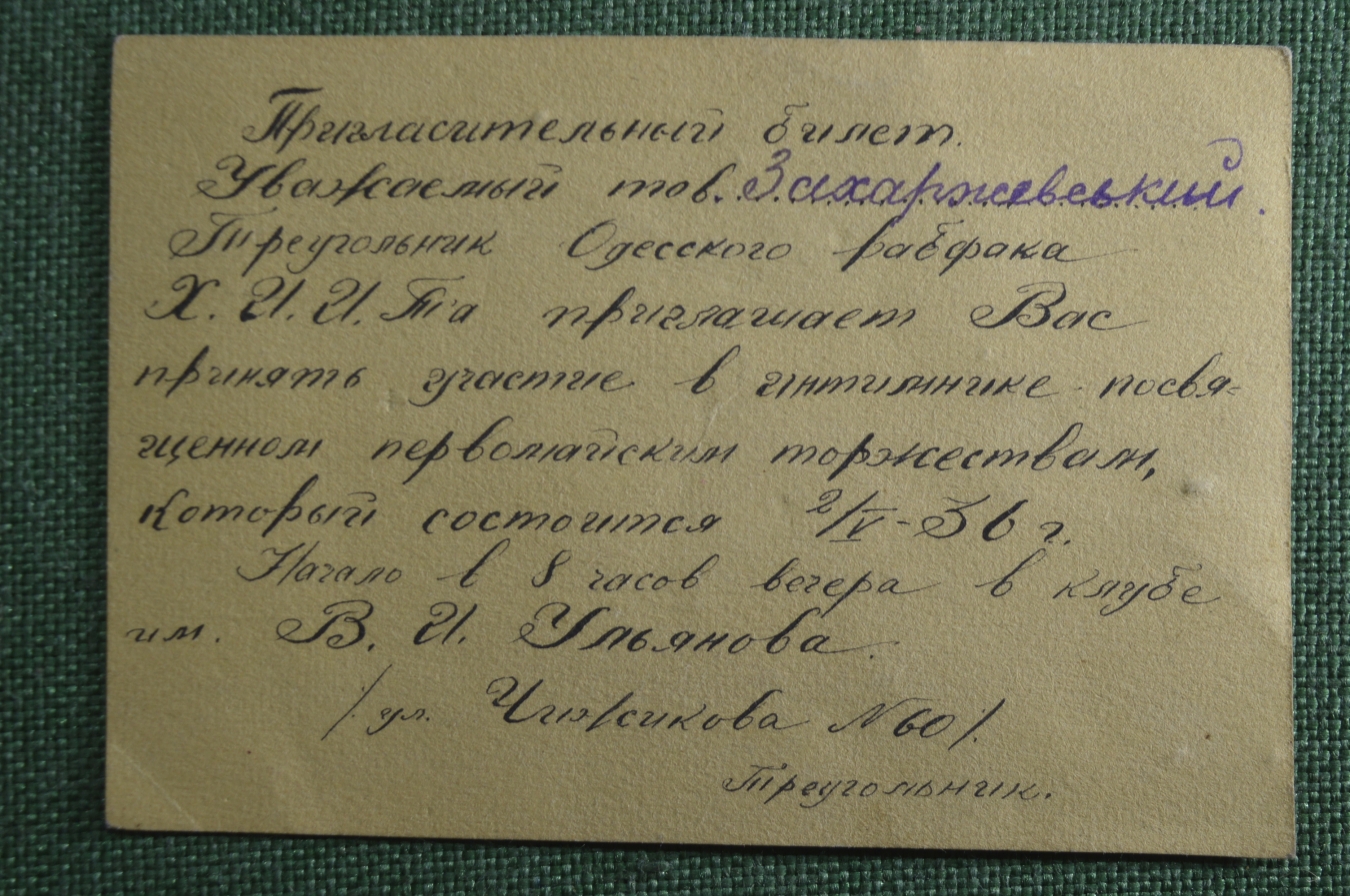 Пригласительный билет.
Уважаемый тов. Захаржевський.
Треугольник Одесского рабфака
Х. И. И. Т'а приглашает Вас
принять участие в интимнике посвя-
щенном первомайским торжествам,
который состоится 2/V - 36 г.
Начало в 8 часов вечера в клубе
им. В. И. Ульянова.
/ ул. Чижикова № 60 /.
Треугольник.